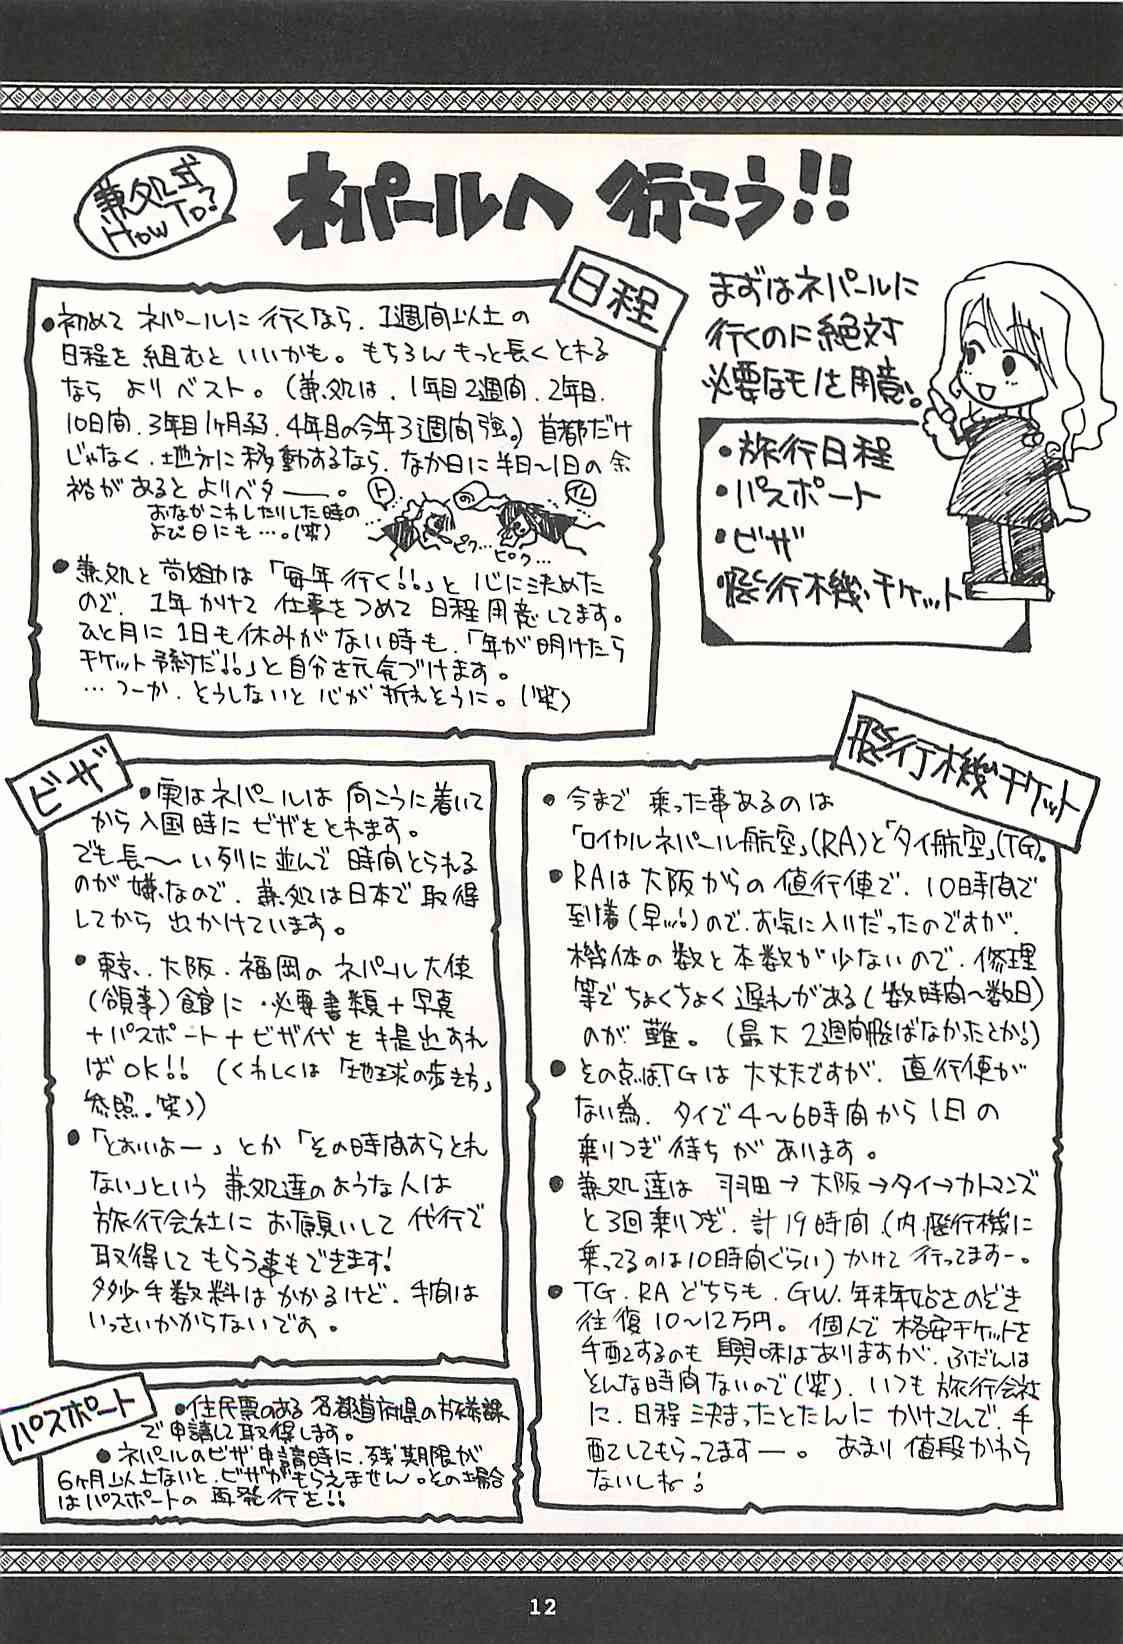 兼処式
HOW TO?
ネパールへ 行こう!!
まずはネパールに
行くのに絶対
必要なモノを用意。
・旅行日程
・パスポート
・ビザ
・飛行機チケット
日程
●初めて ネパールに 行くなら、1週間以上の
日程を 組むと いいかも。もちろん もっと長く とれる
なら よりベスト。(兼処は、1年目2週間、2年目、
10日間、3年目1ヶ月弱、4年目の今年3週間強。) 首都だけ
じゃなく、地方に移動するなら、なか日に 半日〜1日の余
裕が あると よりベター。
おなかこわしたりした時の
よび日にも…。(笑)
ト
の
イレ
ピク…ピク…
●兼処と 尚姐は 「毎年 行く!!」と 心に決めた
ので、1年かけて 仕事をつめて 日程用意してます。
ひと月に 1日も休みがない時も、「年が明けたら
チケット予約だ!!」と自分を元気づけます。
…つーか、そうしないと 心が 折れそうに。(笑)
ビザ
●実はネパールは 向こうに着いて
から入国時に ビザをとれます。
でも長〜い列に並んで 時間とられる
のが嫌なので、兼処は日本で取得
してから 出かけています。
●東京、大阪、福岡の ネパール大使
(領事)館に 必要書類+写真
+パスポート+ビザ代を提出すれ
ばOK!! (くわしくは「地球の歩き方」
参照。笑))
●「とおいよー」とか「その時間すらとれ
ない」という 兼処達のような人は
旅行会社に お願いして 代行で
取得して もらう事もできます!
多少手数料はかかるけど、手間は
いっさいかからないです。
パスポート
●住民票のある 各都道府県の旅券課
で申請して取得します。
●ネパールのビザ申請時に、残期限が
6ヶ月以上ないと、ビザがもらえません。その場合
はパスポートの 再発行を!!
飛行機チケット
●今まで 乗った事あるのは
「ロイヤルネパール航空」(RA)と「タイ航空」(TG)。
●RAは大阪からの 値行便で、10時間で
到着(早ッ!)ので、お気に入りだったのですが、
機体の数と本数が少ないので、修理
等で ちょくちょく遅れがある(数時間〜数日)
のが 難。(最大 2週間飛ばなかったとか!)
●その点TGは 大丈夫ですが、直行便が
ない為、タイで4〜6時間から1日の
乗りつぎ待ちが あります。
●兼処達は 羽田→大阪→タイ→カトマンズ
と3回乗りつぎ、計19時間(内、飛行機に
乗ってるのは10時間ぐらい)かけて 行ってますー。
●TG、RAどちらも、GW、年末年始さのぞき
往復10〜12万円。個人で 格安チケットを
手配するのも 興味はありますが、ふだんは
そんな時間ないので(笑)、いつも 旅行会社
に、日程 決まったとたんに かけこんで、手
配してもらってますー。あまり 値段かわら
ないしね!
12